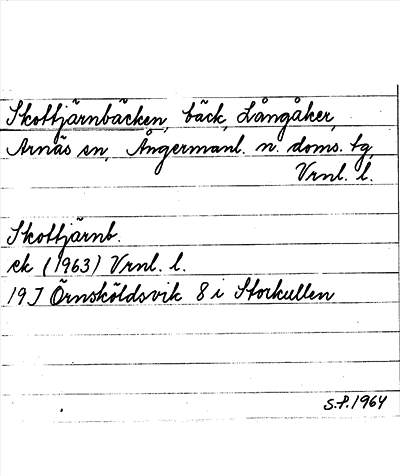 Skottjärnbäcken, bäck, Långåker,
Arnäs sn, Ångermanl. n. doms. tg,
Vrnl. l.
Skottjärnb.
ek (1963) Vrnl. l.
19J Örnsköldsvik 8 i Storkullen
S.P. 1964